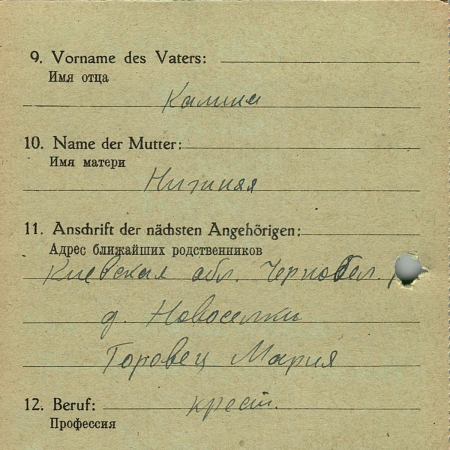 9. Vorname des Vaters:
Имя отца
Калина
10. Name der Mutter:
Имя матери
11. Anschrift der nächsten Angehörigen:
Адрес ближайших родственников
Киевская обл. Чернобел.
д. Новоселки
Горовец Мария
12. Beruf: крест.
Профессия